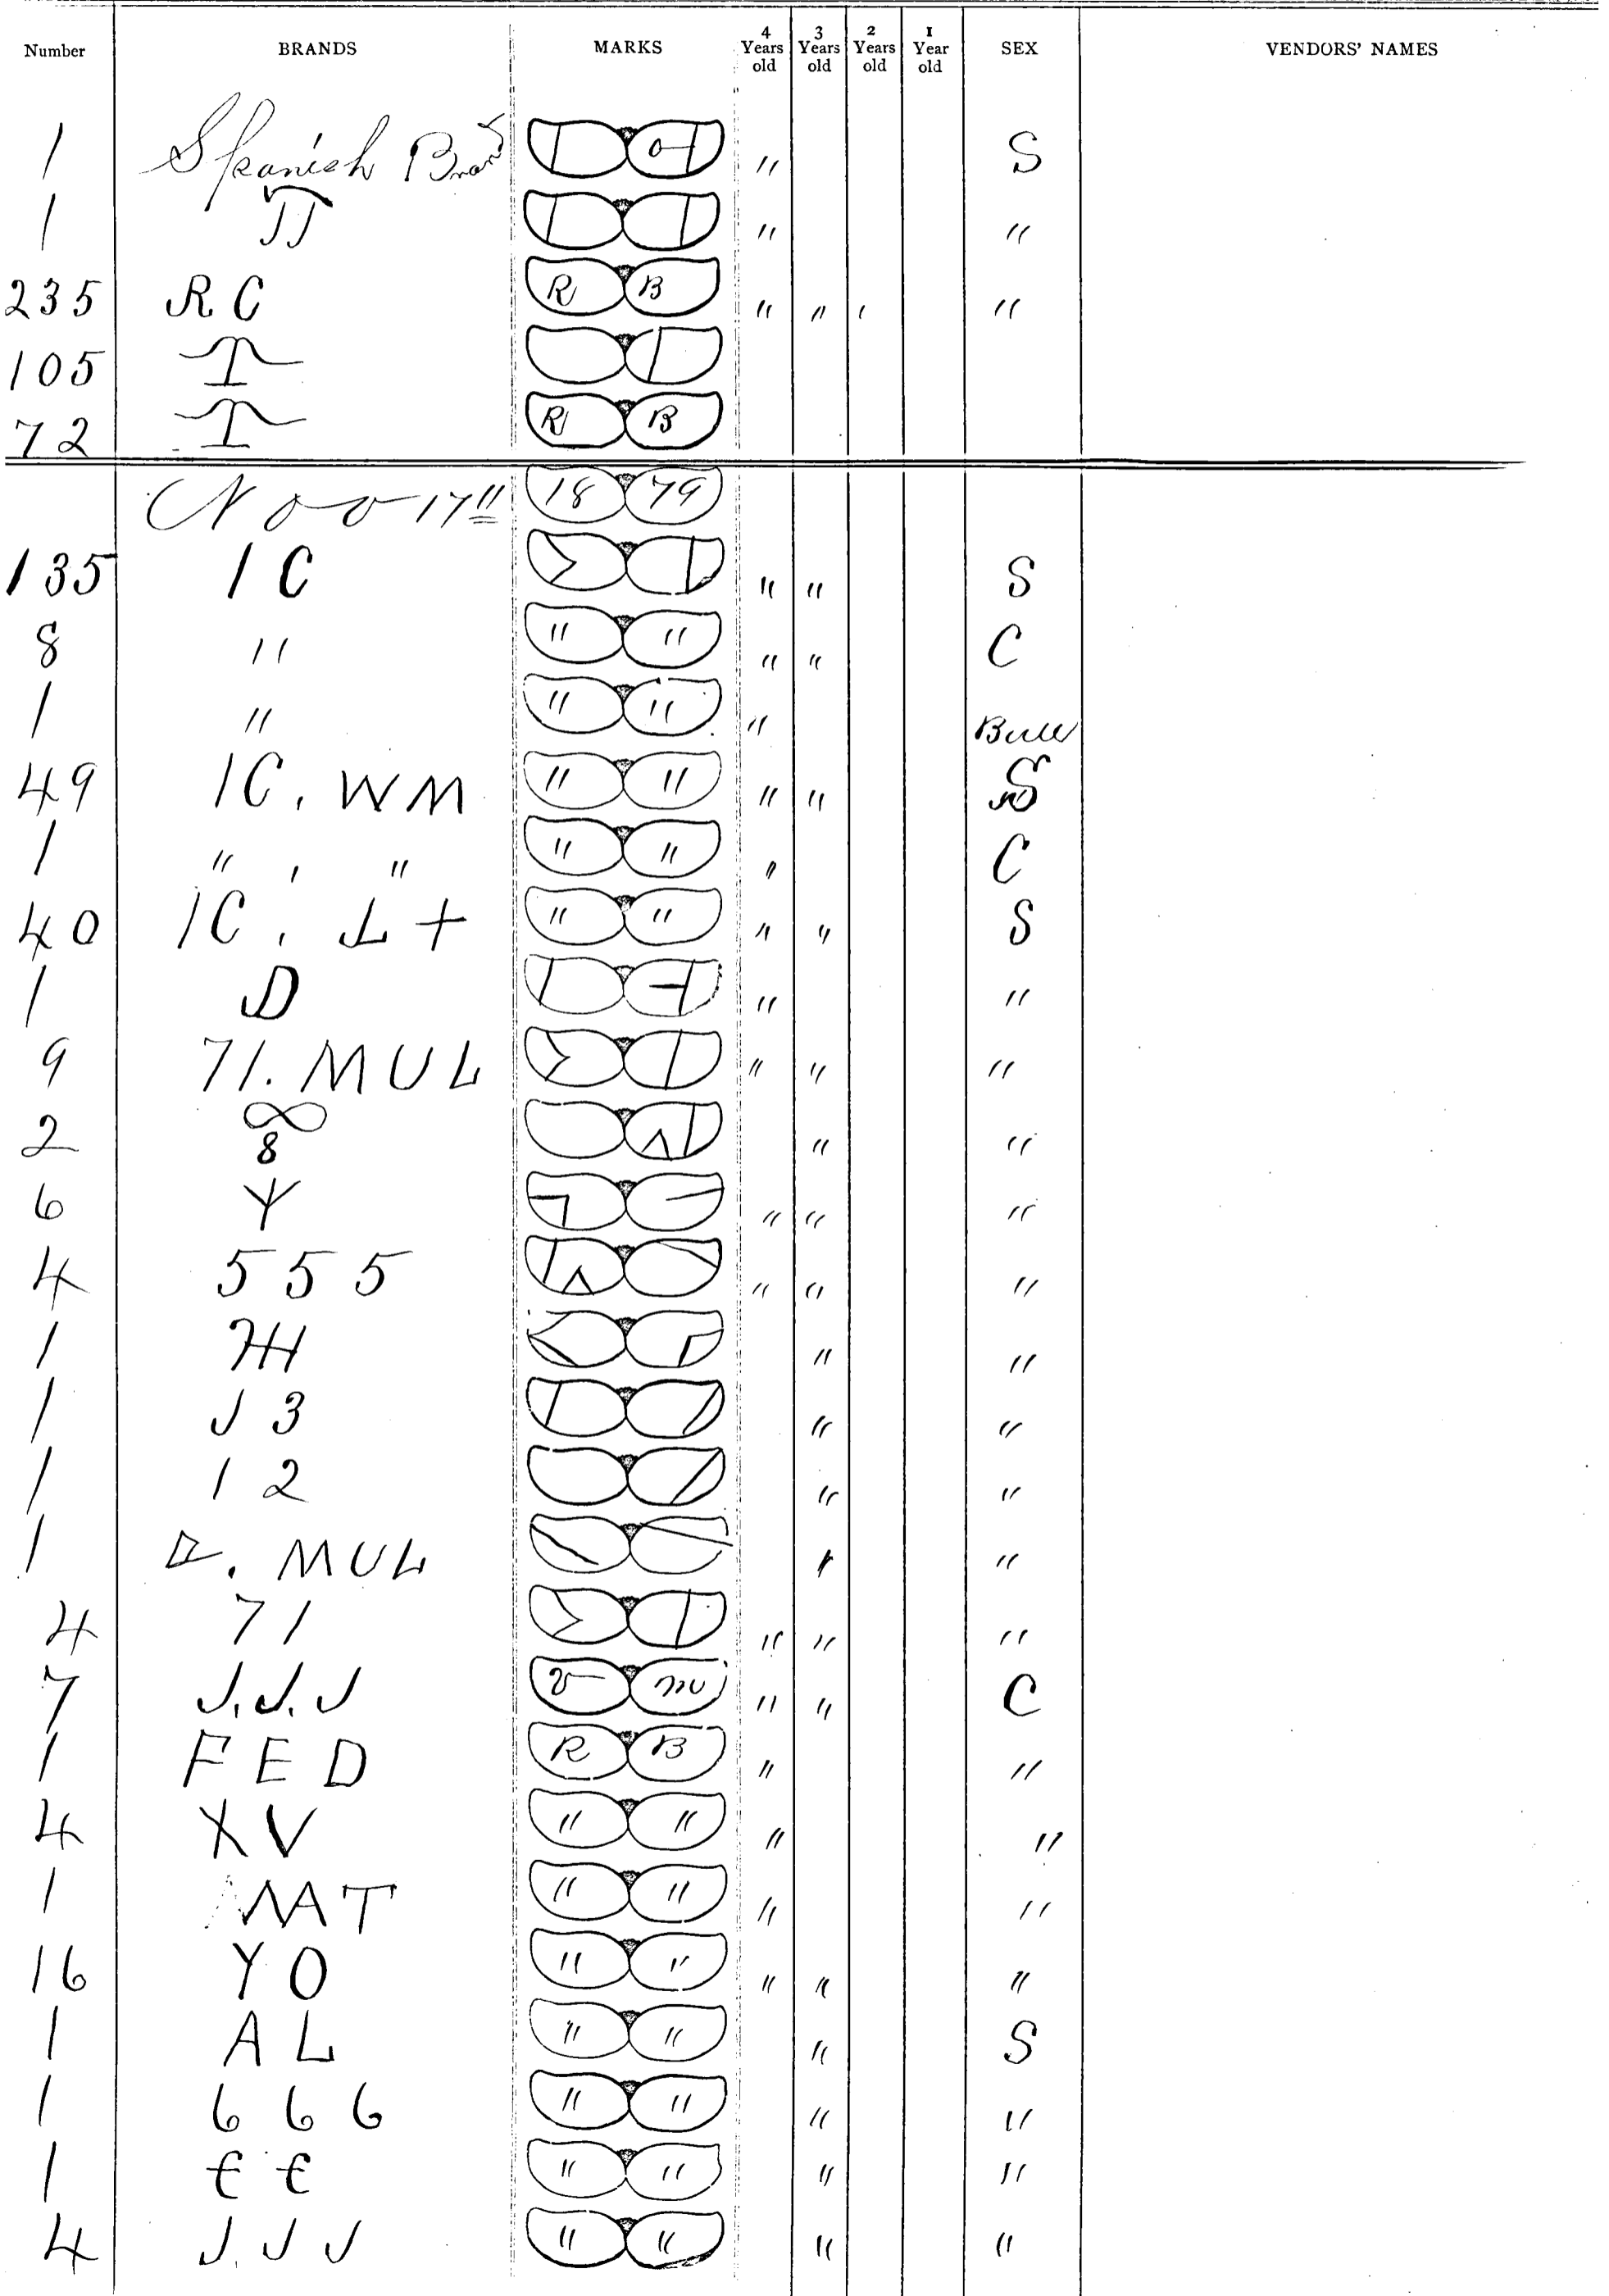 Number BRANDS MARKS 4 Years old 3 Years old 2 Years old 1 Year old SEX VENDORS' NAMES
1 Spanish Brand " S
1 JJ " "
235 RC R B " " ' "
105 T
72 T R B
Nov 17" 18 79
135 1C " " S
8 " " " " " C
1 " " " " Bull
49 1C, WM " " " " S
1 " , " " " " C
40 1C, L + " " " " S
1 D " "
9 71. MUL " " "
2 ∞ 8 " "
6 Y " " "
4 555 " " "
1 7H " "
1 J 3 " "
1 1 2 " "
1 . MUL " "
4 71 " " "
7 J.J.J " " C
1 FED R B " "
4 XV " " " "
1 MAT " " " "
16 YO " " " " "
1 AL " " " S
1 666 " " " "
1 € € " " " "
4 J.JJ " " " "